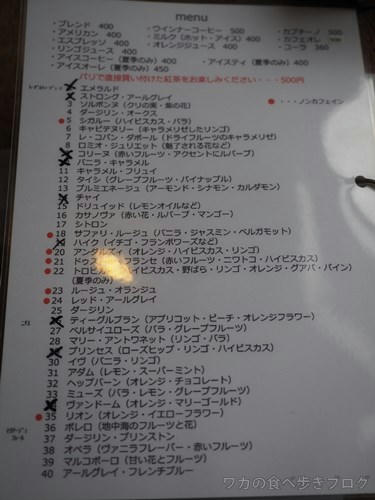 menu
・ブレンド 400 ・ウインナーコーヒー 500 ・カプチーノ 500
・アメリカン 400 ・ミルク(ホット・アイス) 400 ・カフェオレ
・エスプレッソ 400 ・オレンジジュース 400 ・コーラ 360
・リンゴジュース 400
・アイスコーヒー(夏季のみ) 400 ・アイスティ(夏季のみ) 400
・アイスオーレ(夏季のみ) 450
パリで直接買い付けた紅茶をお楽しみください・・・500円
エメラルド
ストロング・アールグレイ
●・・・ノンカフェイン
3 ソルボンヌ(クリの実・紫の花)
4 ダージリン・オークス
5 シガルー(ハイビスカス・バラ)
6 キャピテヌリー(キャラメリゼしたリンゴ)
7 レ・コパン・ダボール(ドライフルーツのキャラメリゼ)
8 ロミオ・ジュリエット(魅了される花など)
コリーヌ(赤いフルーツ・アクセントにルバーブ)
バニラ・キャラメル
11 キャラメル・フリュイ
12 タイシ(グレープフルーツ・パイナップル)
13 プルミエネージュ(アーモンド・シナモン・カルダモン)
チャイ
15 ドリュイッド(レモンオイルなど)
16 カサノヴァ(赤い花・ルバーブ・マンゴー)
17 シトロン
18 サファリ・ルージュ(バニラ・ジャスミン・ベルガモット)
ハイク(イチゴ・フランボワーズなど)
20 アンダルティ(オレンジ・ハイビスカス・リンゴ)
21 ドゥス・フランセ(赤いフルーツ・ニワトコ・ハイビスカス)
22 トロピカ ハイビスカス・野ばら・リンゴ・オレンジ・グアバ・パイン)
(夏季のみ)
23 ルージュ・オランジュ
24 レッド・アールグレイ
25 ダージリン
ティーグルブラン(アプリコット・ピーチ・オレンジフラワー)
27 ベルサイユローズ(バラ・グレープフルーツ)
28 マリー・アントワネット(リンゴ・バラ)
プリンセス(ローズヒップ・リンゴ・ハイビスカス)
30 イヴ(バニラ・リンゴ)
31 アダム(レモン・スーパーミント)
32 ヘップバーン(オレンジ・チョコレート)
33 ミューズ(バラ・レモン・グレープフルーツ)
ヴァンドーム(オレンジ・マリーゴールド)
35 リオン(オレンジ・イエローフラワー)
36 ボレロ(地中海のフルーツと花)
37 ダージリン・プリンストン
38 オペラ(ヴァニラフレーバー・赤いフルーツ)
39 マルコポーロ(甘い花とフルーツ)
40 アールグレイ・フレンチブルー
ワカの食べ歩きブログ